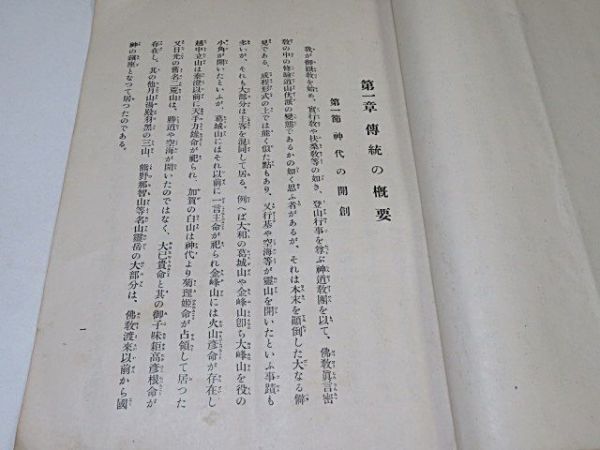 第一章 傳統の槪要
第一節 神代の開創
我が御嶽敎を始め、實行敎や扶桑敎等の如き、登山行事を尊ぶ神道敎團を以て、佛敎眞言密
敎の中の修驗道山伏派の變態であるかの如く思ふ者があるが、それは本末を顚倒した大なる僻
見である。成程形式の上では能く似た點もあり、又行基や空海等が靈山を開いたといふ事蹟も
多いが、それも大部分は主客を混同して居る。例へば大和の葛城山や金峰山卽ち大峰山を役の
小角が開いたといふが、葛城山にはそれ以前に一言主命が祀られ金峰山には火山彥命が存在し
越中立山は泰澄以前に天手力雄命が祀られ、加賀の白山は神代より菊理姬命が占領して居つた
又日光の舊名二荒山は、勝道や空海が開いたのではなく、大己貴命と其の御子味耜高彥根命が
存在し、其の他月山湯殿羽黑の三山、熊野那智山等名山靈岳の大部分は、佛敎渡來以前から國
神の鎭座となつて居つたのである。
一